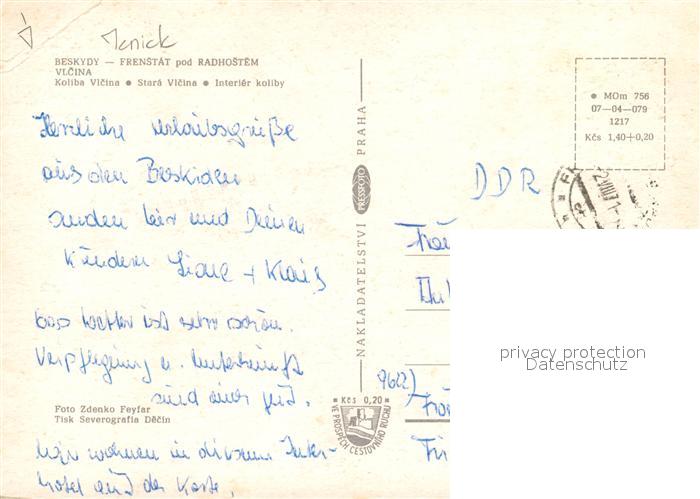 Jenick
BESKYDY — FRENŠTÁT pod RADHOŠTĚM
VLČINA
Koliba Vlčina ● Stará Vlčina ● Interiér koliby
Herzliche Urlaubsgrüße
aus den Beskiden
senden wir und Deinen
Kindern Liane + Klaus
Das Wetter ist sehr schön.
Verpflegung u. Unterkunft
sind auch gut.
Wir wohnen in diesem
hotel auf der Karte.
Foto Zdenko Feyfar
Tisk Severografia Děčín
NAKLADATELSTVÍ PRESSFOTO PRAHA
● MOm 756
07—04—079
1217
Kčs 1,40+0,20
DDR
9622)
Kčs 0,20
VE PROSPĚCH CESTOVNÍHO RUCHU
privacy protection
Datenschutz